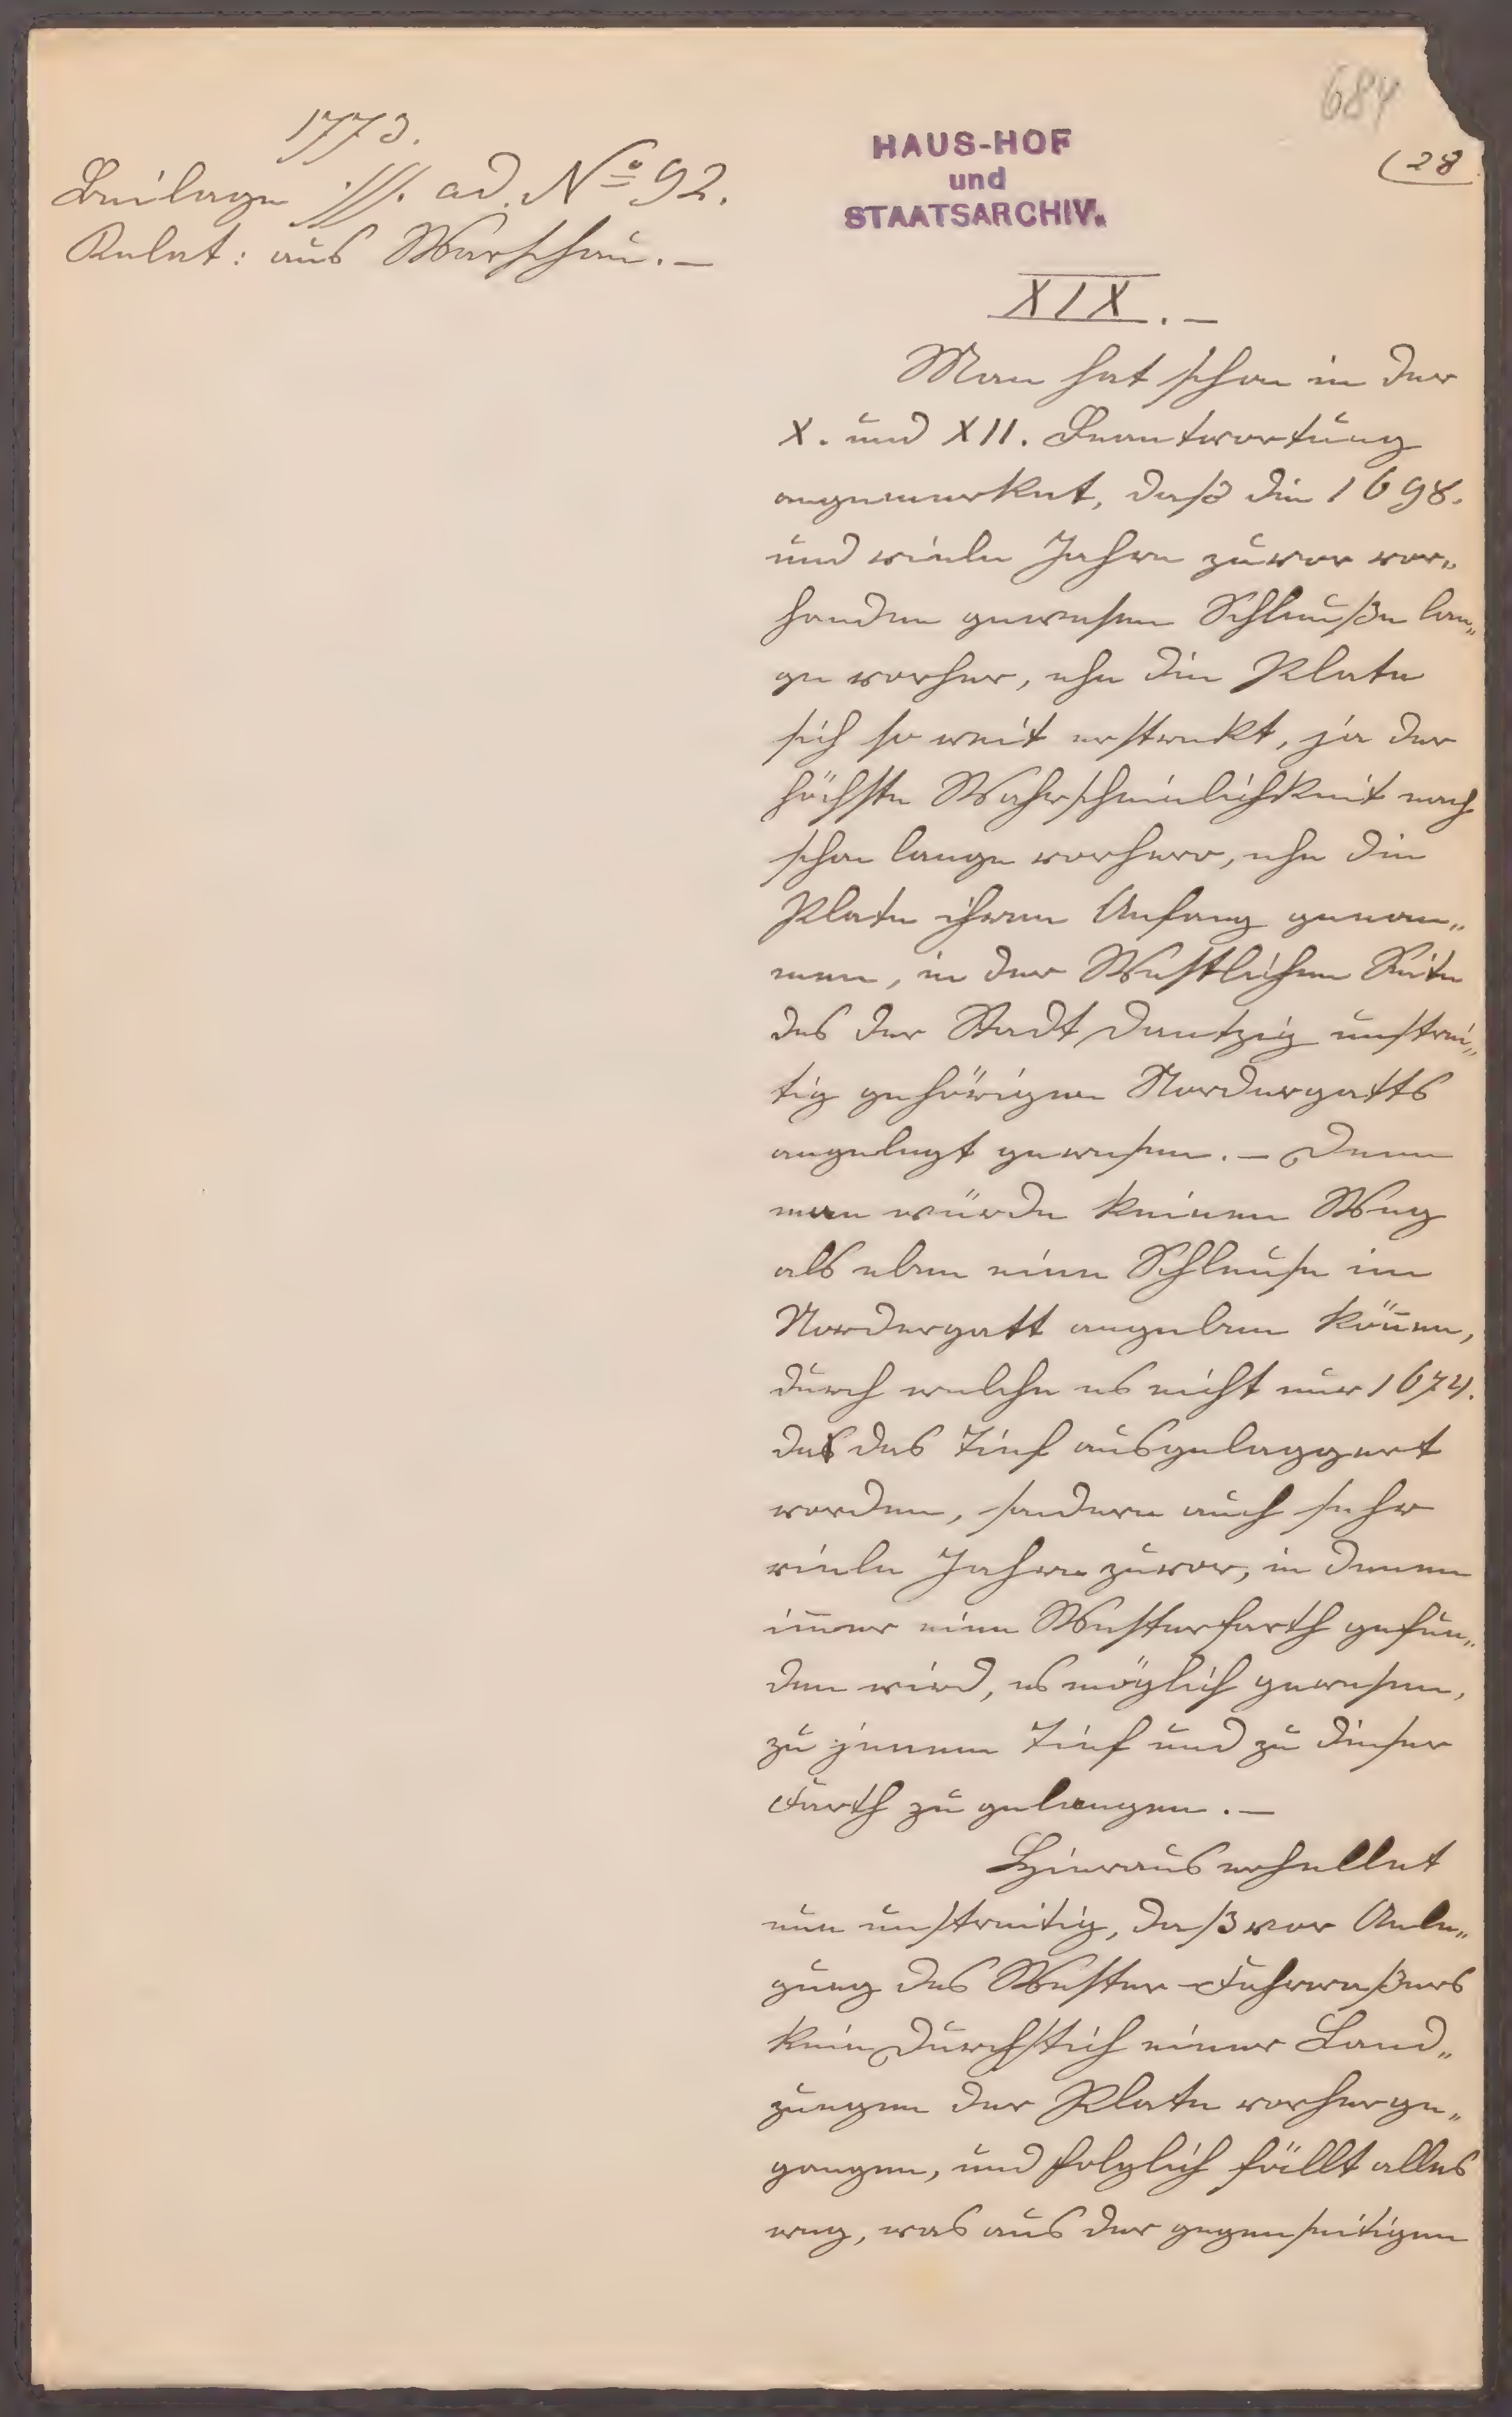 684
(28
1773.
Beilage ·///. ad. No 92.
Relat: aus Warschau. —
HAUS-HOF
und
STAATSARCHIV.
XIX. —
Man hat schon in der
X. und XII. Beantwortung
angemerket, daß die 1698.
und viele Jahre zuvor vor„
handen gewesen Schleuße lan„
ge vorher, ehe die Plate
sich so weit erstrekt, ja der
höchste Wahrscheinlichkeit nach
schon lange vorhero, ehe die
Plate ihren Anfang genom„
men, in der Westlichen Seite
des der Stadt Dantzig unstrei„
tig gehörigen Nordergatts
angelegt gewesen. — Denn
man würde keinen Weg
als eben eine Schleuse im
Nordergatt angeben kön̄en,
durch welche es nicht nur 1674.
das das Tief ausgelaggert
worden, sondern auch sehr
viele Jahre zuvor, in denen
im̄er eine Westerfarth gefun„
den wird, es möglich gewesen,
zu jenem Tief und zu dieser
Farth zu gelangen. —
Hieraus erhellet
nun unstreitig, daß vor Anle„
gung des Wester-Fahrwaßers
kein Durchstich einer Land„
zungen der Plate vorherge„
gangen, und folglich fällt alles
weg, was aus der gegenseitigen